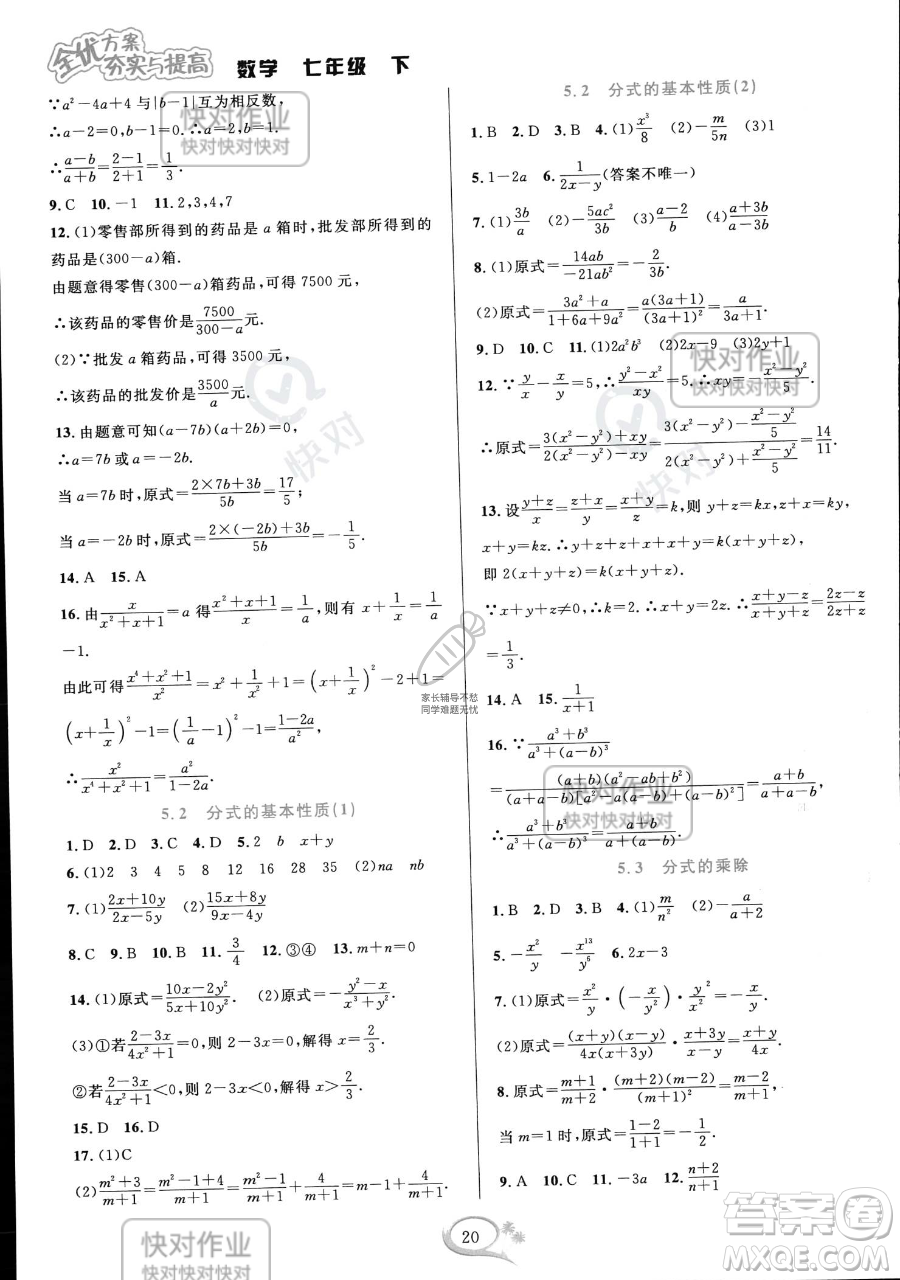 全优方案
夯实与提高
数学 七年级 下
∵a²-4a+4与|b-1|互为相反数,
∴a-2=0,b-1=0.∴a=2,b=1.
∴(a-b)/(a+b)=(2-1)/(2+1)=1/3.
9.C 10.-1 11.2,3,4,7
12.(1)零售部所得到的药品是a箱时,批发部所得到的
药品是(300-a)箱.
由题意得零售(300-a)箱药品,可得7500元,
∴该药品的零售价是7500/(300-a)元.
(2)∵批发a箱药品,可得3500元,
∴该药品的批发价是3500/a元.
13.由题意可知(a-7b)(a+2b)=0,
∴a=7b或a=-2b.
当a=7b时,原式=(2×7b+3b)/5b=17/5;
当a=-2b时,原式=(2×(-2b)+3b)/5b=-1/5.
14.A 15.A
16.由x/(x²+x+1)=a得(x²+x+1)/x=1/a,则有x+1/x=1/a
-1.
由此可得(x⁴+x²+1)/x²=x²+1/x²+1=(x+1/x)²-2+1=
(x+1/x)²-1=(1/a-1)²-1=(1-2a)/a²,
∴x²/(x⁴+x²+1)=a²/(1-2a).
5.2 分式的基本性质(1)
1.D 2.D 3.C 4.D 5.2 b x+y
6.(1)2 3 4 5 8 12 8 (2)na nb
7.(1)(2x+10y)/(2x-5y) (2)(20x+8y)/(9x-4y)
8.C 9.B 10.B 11.3/4 12.③④ 13.m+n=0
14.(1)原式=(10x-2y²)/(5x+10y²). (2)原式=-(y²-x)/(x³+y).
(3)①若(2-3x)/(4x²+1)=0,则2-3x=0,解得x=2/3.
②若(2-3x)/(4x²+1)<0,则2-3x<0,解得x>2/3.
15.D 16.D
17.(1)C
(2)(m²+3)/(m+1)=(m²-1+4)/(m+1)=(m²-1)/(m+1)+4/(m+1)=m-1+4/(m+1).
5.2 分式的基本性质(2)
1.B 2.D 3.B 4.(1)x³/8 (2)-m/5n (3)1
5.1-2a 6.1/(2x-y)(答案不唯一)
7.(1)3b/a (2)-5ac²/3b (3)(a-2)/b (4)(a+3b)/(a-3b)
8.(1)原式=-14ab/21ab²=-2/3b.
(2)原式=(3a²+a)/(1+6a+9a²)=a(3a+1)/(3a+1)²=a/(3a+1).
9.D 10.C 11.(1)2a²b³ (2)2x-9 (3)2y+1
12.∵y/x-x/y=5,∴(y²-x²)/xy=5.∴xy=(y²-x²)/5.
∴原式=(3(x²-y²)+xy)/(2(x²-y²)-xy)=(3(x²-y²)-(x²-y²)/5)/(2(x²-y²)+(x²-y²)/5)=14/11.
13.设(y+z)/x=(z+x)/y=(x+y)/z=k,则y+z=kx,z+x=ky,
x+y=kz.∴y+z+z+x+x+y=k(x+y+z),
即2(x+y+z)=k(x+y+z).
∵x+y+z≠0,∴k=2.∴x+y=2z.∴(x+y-z)/(x+y+z)=(2z-z)/(2z+z)=
1/3.
14.A 15.1/(x+1)
16.∵(a³+b³)/(a³+(a-b)³)=
(a+b)(a²-ab+b²)/((a+a-b)[a²-a(a-b)+(a-b)²])=(a+b)/(a+(a-b)),
∴(a³+b³)/(a³+(a-b)³)=(a+b)/(a+(a-b)).
5.3 分式的乘除
1.B 2.D 3.D 4.(1)m/n² (2)-a/(a+2)
5.-x²/y -x¹³/y⁶ 6.2x-3
7.(1)原式=x²/y²·(-x/y²)·y²/x²=-x/y².
(2)原式=(x+y)(x-y)/4x(x+3y)·(x+3y)/(x-y)=(x+y)/4x.
8.原式=(m+1)/(m+2)·(m+2)(m-2)/(m+1)²=(m-2)/(m+1),
当m=1时,原式=(1-2)/(1+1)=-1/2.
9.A 10.C 11.(n+2)/(n+1)
20
快对作业
快对快对快对
快对作业
快对快对快对
快对作业
快对快对快对
快对作业
快对快对快对
快对
快对
家长辅导不愁
同学难题无忧
答案卷
MXQE.COM